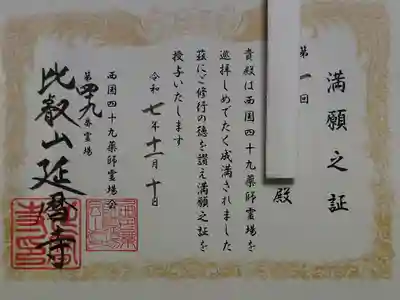 満願之証
第一回
殿
貴殿は西国四十九薬師霊場を
巡拝しめでたく成満されました
茲にご修行の徳を讃え満願之証を
授与いたします
令和七年十一月十日
西国四十九薬師霊場会
第四十九番霊場
比叡山延暦寺